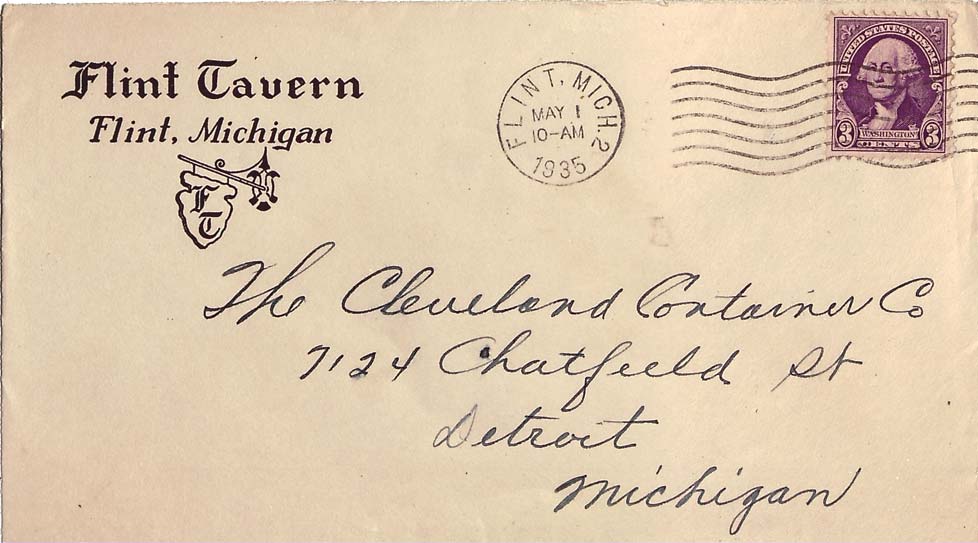 Flint Tavern
Flint, Michigan
FT
FLINT, MICH. 2
MAY 1
10-AM
1935
UNITED STATES POSTAGE
3 WASHINGTON 3
CENTS
The Cleveland Container Co
7124 Chatfield St
Detroit
Michigan